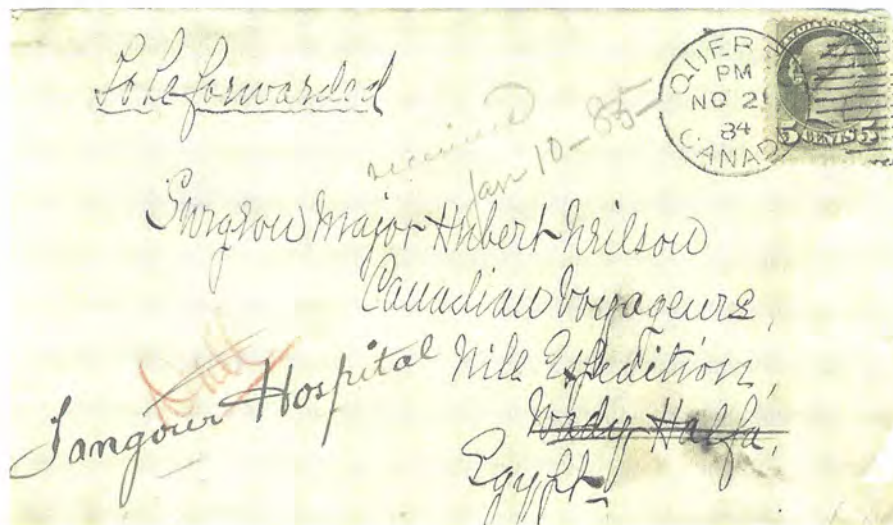 To be forwarded
QUEB
PM
NO 2
84
CANADA
5 CENTS 5
received
Jan 10 - 85
Surgeon Major Hubert Neilson
Canadian Voyageurs,
Nile Expedition,
Wady Halfa,
Egypt
Sangour Hospital